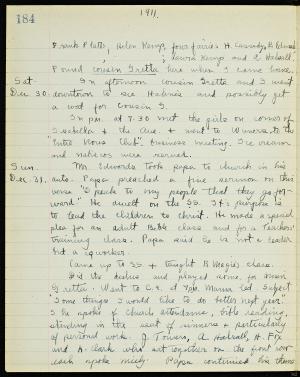 184
1911.
Frank Platt, Helen Kemp, four fairies H.
Laura Kemp and A. Halsall.
Found cousin Gretta here when I came home.
Sat In afternoon cousin Gretta and I went
Dec. 30. downtown to see and possibly get
a for cousin G.
In p.m. at 7.30 met the girls on corner of
Isabella & the Ave. & went to to the
"Entre Nous Club" business meeting. Ice cream
and were served.
Sun. Mr. Edwards took papa to church in his
Dec. 31. auto. Papa preached a fine sermon on this
verse "Speak to my people that they go for-
ward" He dwelt on the S.S. It's purpose is
to lead the children to Christ. He made a special
plea for an adult Bible class and for a Teachers'
training class. Papa said he is not a leader
but a coworker.
Came up to SS + taught B. Magee's class.
Did the dishes and played some, for
Gretta. Went to C.E. at 7 p.m. Mamma led. Subject
"Some things I would like to do better next year."
I spoke of church attendance, bible reading,
standing in the seat of sinners & particularly
of personal work. J. Towers, A. Halsall, A. Fox
and A. Clark who sat together on the front row
each spoke nicely. Papa continued his theme